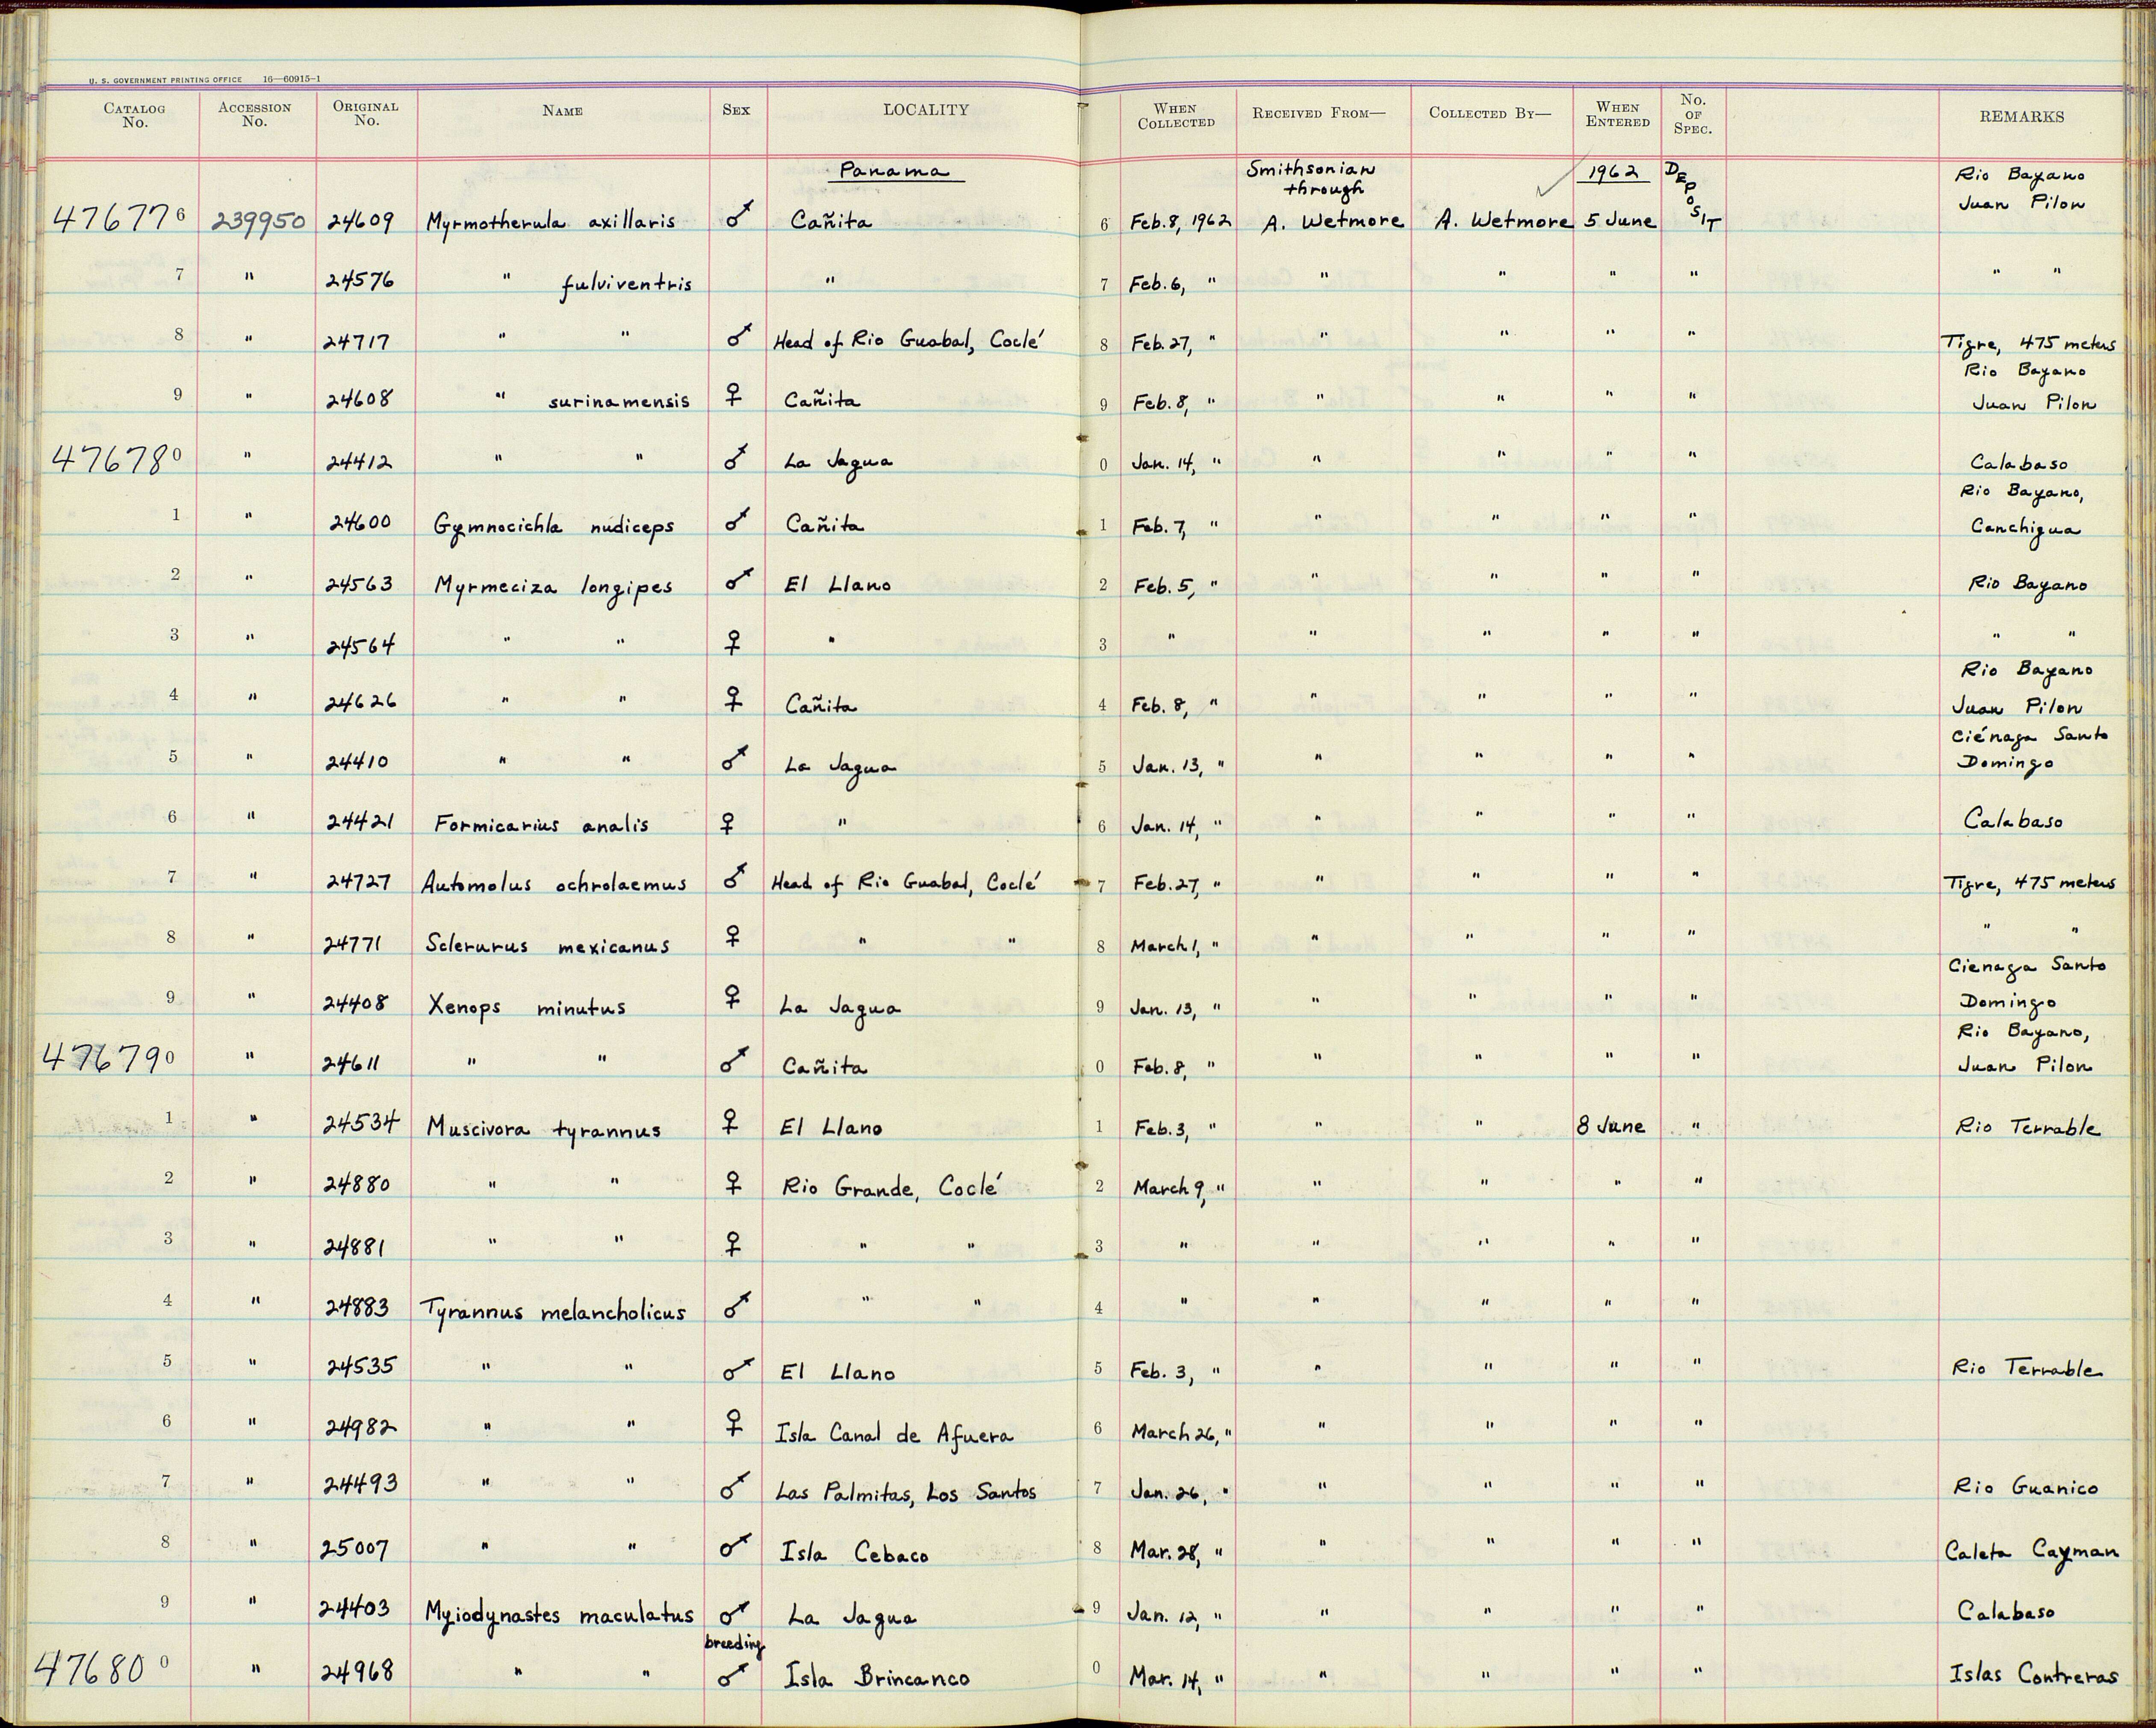 U. S. GOVERNMENT PRINTING OFFICE 16—60915-1
CATALOG No. ACCESSION No. ORIGINAL No. NAME SEX LOCALITY WHEN COLLECTED RECEIVED FROM— COLLECTED BY— WHEN ENTERED No. OF SPEC. REMARKS
Panama Smithsonian through ✓ 1962 DEPOSIT Rio Bayano
476776 239950 24609 Myrmotherula axillaris ♂ Cañita 6 Feb. 8, 1962 A. Wetmore A. Wetmore 5 June Juan Pilon
7 " 24576 " fulviventris " 7 Feb. 6, " " " " " " "
8 " 24717 " " ♂ Head of Rio Guabal, Coclé 8 Feb. 27, " " " " " Tigre, 475 meters
Rio Bayano
9 " 24608 " surinamensis ♀ Cañita 9 Feb. 8, " " " " " Juan Pilon
476780 " 24412 " " ♂ La Jagua 0 Jan. 14, " " " " " Calabaso
Rio Bayano,
1 " 24600 Gymnocichla nudiceps ♂ Cañita 1 Feb. 7, " " " " " Canchigua
2 " 24563 Myrmeciza longipes ♂ El Llano 2 Feb. 5, " " " " " Rio Bayano
3 " 24564 " " ♀ " 3 " " " " " " "
Rio Bayano
4 " 24626 " " ♀ Cañita 4 Feb. 8, " " " " " Juan Pilon
Ciénaga Santo
5 " 24410 " " ♂ La Jagua 5 Jan. 13, " " " " " Domingo
6 " 24421 Formicarius analis ♀ " 6 Jan. 14, " " " " " Calabaso
7 " 24727 Automolus ochrolaemus ♂ Head of Rio Guabal, Coclé 7 Feb. 27, " " " " " Tigre, 475 meters
8 " 24771 Sclerurus mexicanus ♀ " " 8 March 1, " " " " " " "
Cienaga Santo
9 " 24408 Xenops minutus ♀ La Jagua 9 Jan. 13, " " " " " Domingo
Rio Bayano,
476790 " 24611 " " ♂ Cañita 0 Feb. 8, " " " " " Juan Pilon
1 " 24534 Muscivora tyrannus ♀ El Llano 1 Feb. 3, " " " 8 June " Rio Terrable
2 " 24880 " " ♀ Rio Grande, Coclé 2 March 9, " " " " "
3 " 24881 " " ♀ " " 3 " " " " "
4 " 24883 Tyrannus melancholicus ♂ " " 4 " " " " "
5 " 24535 " " ♂ El Llano 5 Feb. 3, " " " " " Rio Terrable
6 " 24982 " " ♀ Isla Canal de Afuera 6 March 26, " " " " "
7 " 24493 " " ♂ Las Palmitas, Los Santos 7 Jan. 26, " " " " " Rio Guanico
8 " 25007 " " ♂ Isla Cebaco 8 Mar. 28, " " " " " Caleta Cayman
9 " 24403 Myiodynastes maculatus ♂ La Jagua 9 Jan. 12, " " " " " Calabaso
breeding
476800 " 24968 " " ♂ Isla Brincanco 0 Mar. 14, " " " " " Islas Contreras